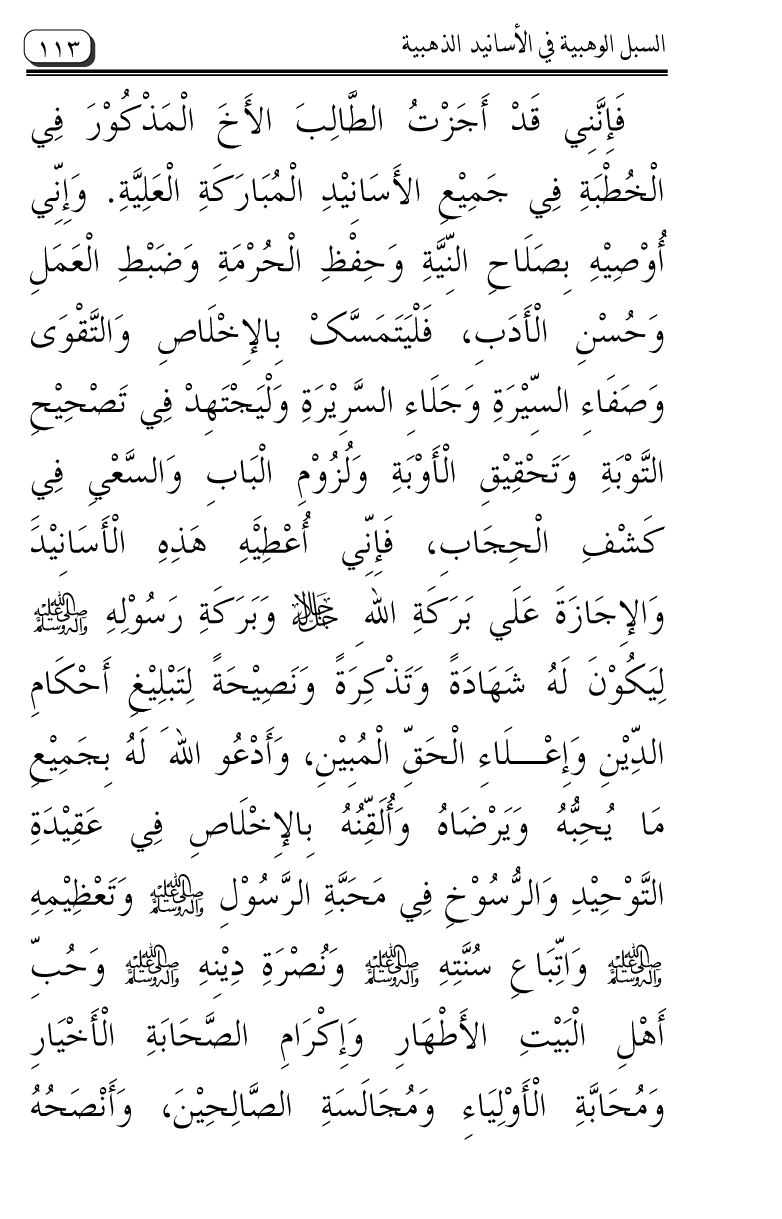 السبل الوهبية في الأسانيد الذهبية ١١٣
فَإِنَّنِي قَدْ أَجَزْتُ الطَّالِبَ الأَخَ الْمَذْكُوْرَ فِي
الْخُطْبَةِ فِي جَمِيْعِ الأَسَانِيْدِ الْمُبَارَكَةِ الْعَلِيَّةِ. وَإِنِّي
أُوْصِيْهِ بِصَلَاحِ النِّيَّةِ وَحِفْظِ الْحُرْمَةِ وَضَبْطِ الْعَمَلِ
وَحُسْنِ الْأَدَبِ، فَلْيَتَمَسَّكْ بِالإِخْلَاصِ وَالتَّقْوَى
وَصَفَاءِ السِّيْرَةِ وَجَلَاءِ السَّرِيْرَةِ وَلْيَجْتَهِدْ فِي تَصْحِيْحِ
التَّوْبَةِ وَتَحْقِيْقِ الْأَوْبَةِ وَلُزُوْمِ الْبَابِ وَالسَّعْيِ فِي
كَشْفِ الْحِجَابِ، فَإِنِّي أُعْطِيْهِ هَذِهِ الْأَسَانِيْدَ
وَالإِجَازَةَ عَلَي بَرَكَةِ اللهِ ﷻ وَبَرَكَةِ رَسُوْلِهِ ﷺ
لِيَكُوْنَ لَهُ شَهَادَةً وَتَذْكِرَةً وَنَصِيْحَةً لِتَبْلِيْغِ أَحْكَامِ
الدِّيْنِ وَإِعْـــلَاءِ الْحَقِّ الْمُبِيْنِ، وَأَدْعُو اللهَ لَهُ بِجَمِيْعِ
مَا يُحِبُّهُ وَيَرْضَاهُ وَأُلَقِّنُهُ بِالإِخْلَاصِ فِي عَقِيْدَةِ
التَّوْحِيْدِ وَالرُّسُوْخِ فِي مَحَبَّةِ الرَّسُوْلِ ﷺ وَتَعْظِيْمِهِ
ﷺ وَاتِّبَاعِ سُنَّتِهِ ﷺ وَنُصْرَةِ دِيْنِهِ ﷺ وَحُبِّ
أَهْلِ الْبَيْتِ الأَطْهَارِ وَإِكْرَامِ الصَّحَابَةِ الْأَخْيَارِ
وَمُحَابَّةِ الْأَوْلِيَاءِ وَمُجَالَسَةِ الصَّالِحِيْنَ، وَأَنْصَحُهُ